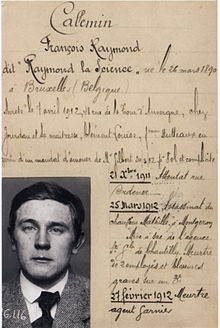 Callemin
François Raymond
dit "Raymond la Science" né le 26 mars 1890
à Bruxelles (Belgique)
Arrêté le 7 avril 1912, 48 rue de la Tour d'Auvergne, chez
Jourdan et sa maîtresse, Clément Louise, femme
en d'un mandat d'amener de Mr Gilbert du
vol et complicité
21 Xbre 1911 Attentat rue
Ordener
25 Mars 1912 Assassinat du
chauffeur Mathillé, à Montgeron
Mise à sac de l'agence
Sté Gle de Chantilly. Meurtre
de 2 employés et blessures
graves sur un 3e
27 février 1912 Meurtre
agent Garnier
G.116